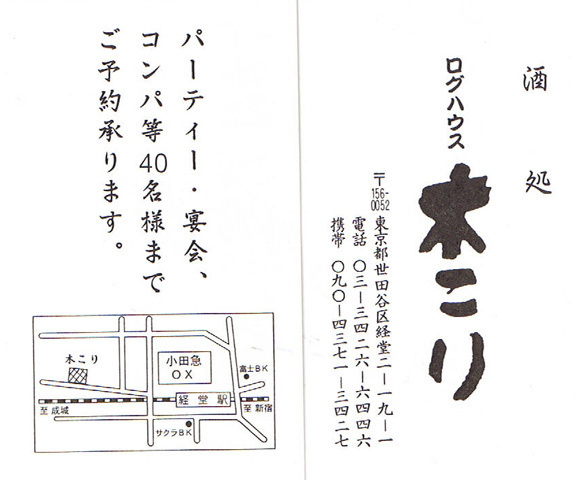 酒処
ログハウス
木こり
〒156-0052
東京都世田谷区経堂二ー一九ー一
電話 〇三ー三四二六ー六四四六
携帯 〇九〇ー四三七一ー三四二七
パーティー・宴会、
コンパ等40名様まで
ご予約承ります。
木こり
小田急
OX
富士BK
経堂駅
至成城
至新宿
サクラBK